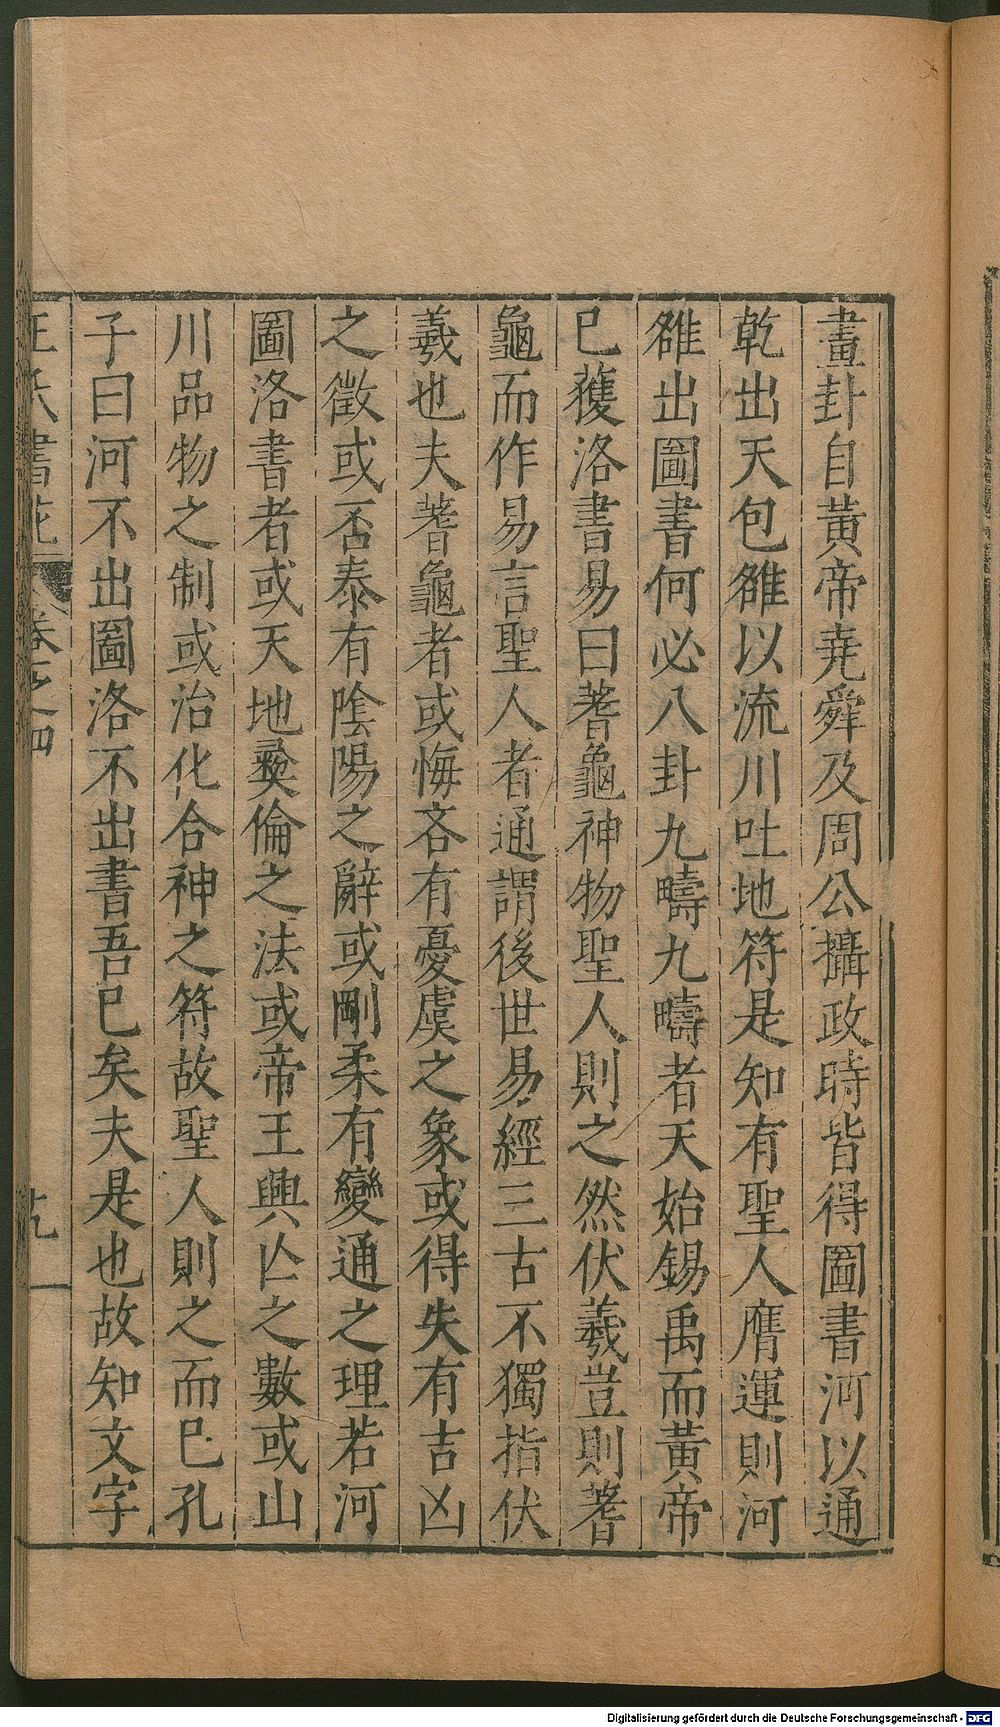 畫卦自黃帝堯舜及周公攝政時皆得圖書河以通
乾出天包雒以流川吐地符是知有聖人膺運則河
雒出圖書何必八卦九疇九疇者天始錫禹而黃帝
巳獲洛書易曰蓍龜神物聖人則之然伏羲豈則蓍
龜而作易言聖人者通謂後世易經三古不獨指伏
羲也夫蓍龜者或悔吝有憂虞之象或得失有吉凶
之徵或否泰有陰陽之辭或剛柔有變通之理若河
圖洛書者或天地彝倫之法或帝王興亾之數或山
川品物之制或治化合神之符故聖人則之而巳孔
子曰河不出圖洛不出書吾巳矣夫是也故知文字
王氏書苑 卷之四 九
Digitalisierung gefördert durch die Deutsche Forschungsgemeinschaft - DFG